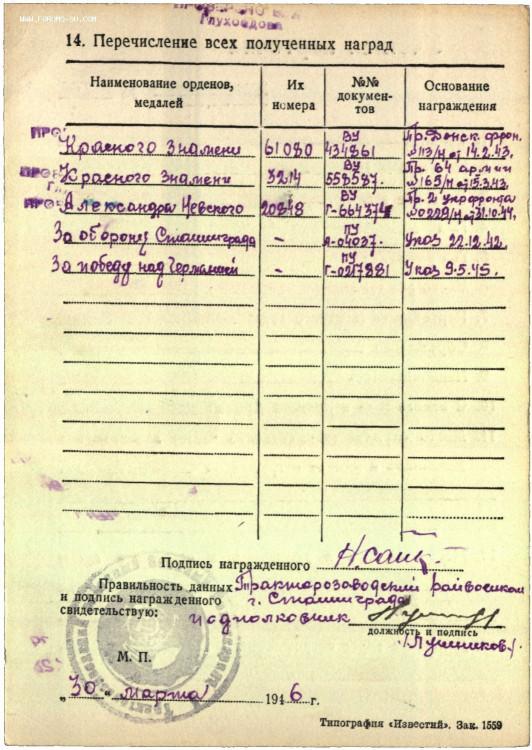 www.forums-su.com
Глуходедова
14. Перечисление всех полученных наград
Наименование орденов, медалей | Их номера | №№ документов | Основание награждения
Красного Знамени | 61080 | ВУ 434861 | Пр. Донск. фрон. №113/н от 14.2.43.
Красного Знамени | 3214 | ВУ 558587. | Пр. 64 армии №165/н от 15.3.43
Александра Невского | 20848 | Г-664374 | Пр. 2 укрфронта №0229/н от 31.10.44.
За оборону Сталинграда | – | ПУ Я-04037. | Указ 22.12.42.
За победу над Германией | – | ПУ Г-0217881 | Указ 9.5.45.
Подпись награжденного
Правильность данных Тракторозаводский райвоенком
и подпись награжденного г. Сталинграда
свидетельствую: подполковник
должность и подпись
М. П.
„30“ марта 1946 г.
Типография «Известий». Зак. 1559